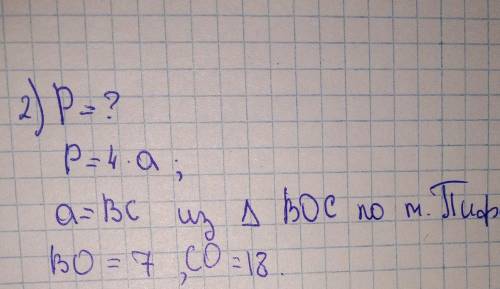 2) P = ?
P = 4 · a ;
a = BC из Δ BOC по т. Пиф
BO = 7 , CO = 18 .